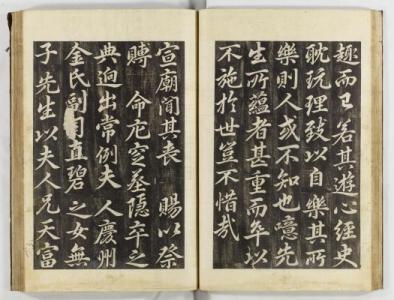 趣而已若其遊心經史
耽玩理致以自樂其所
樂則人或不知也噫先
生所蘊者甚重而卒以
不施於世豈不惜哉
宣廟聞其喪 賜以祭
賻 命庀窆墓隱卒之
典逈出常例夫人慶州
金氏副司直碧之女無
子先生以夫人兄天富